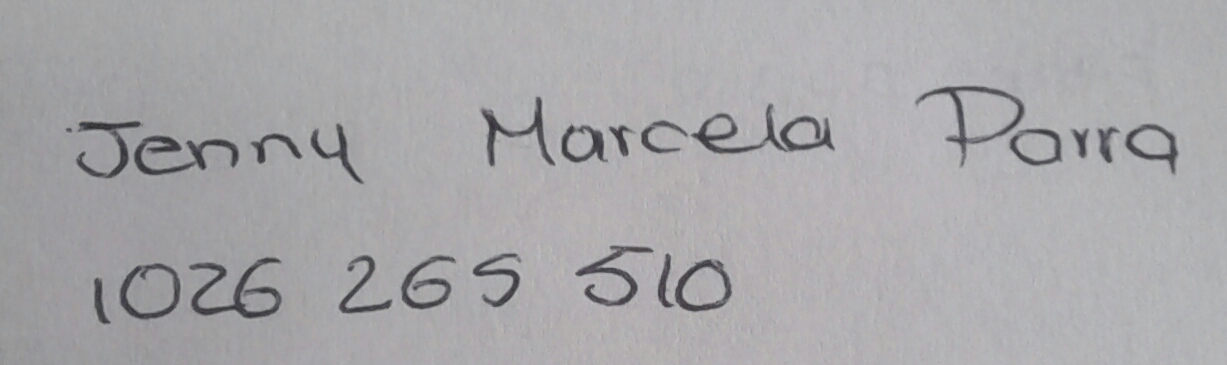 Jenny Marcela Parra
1026 265 510